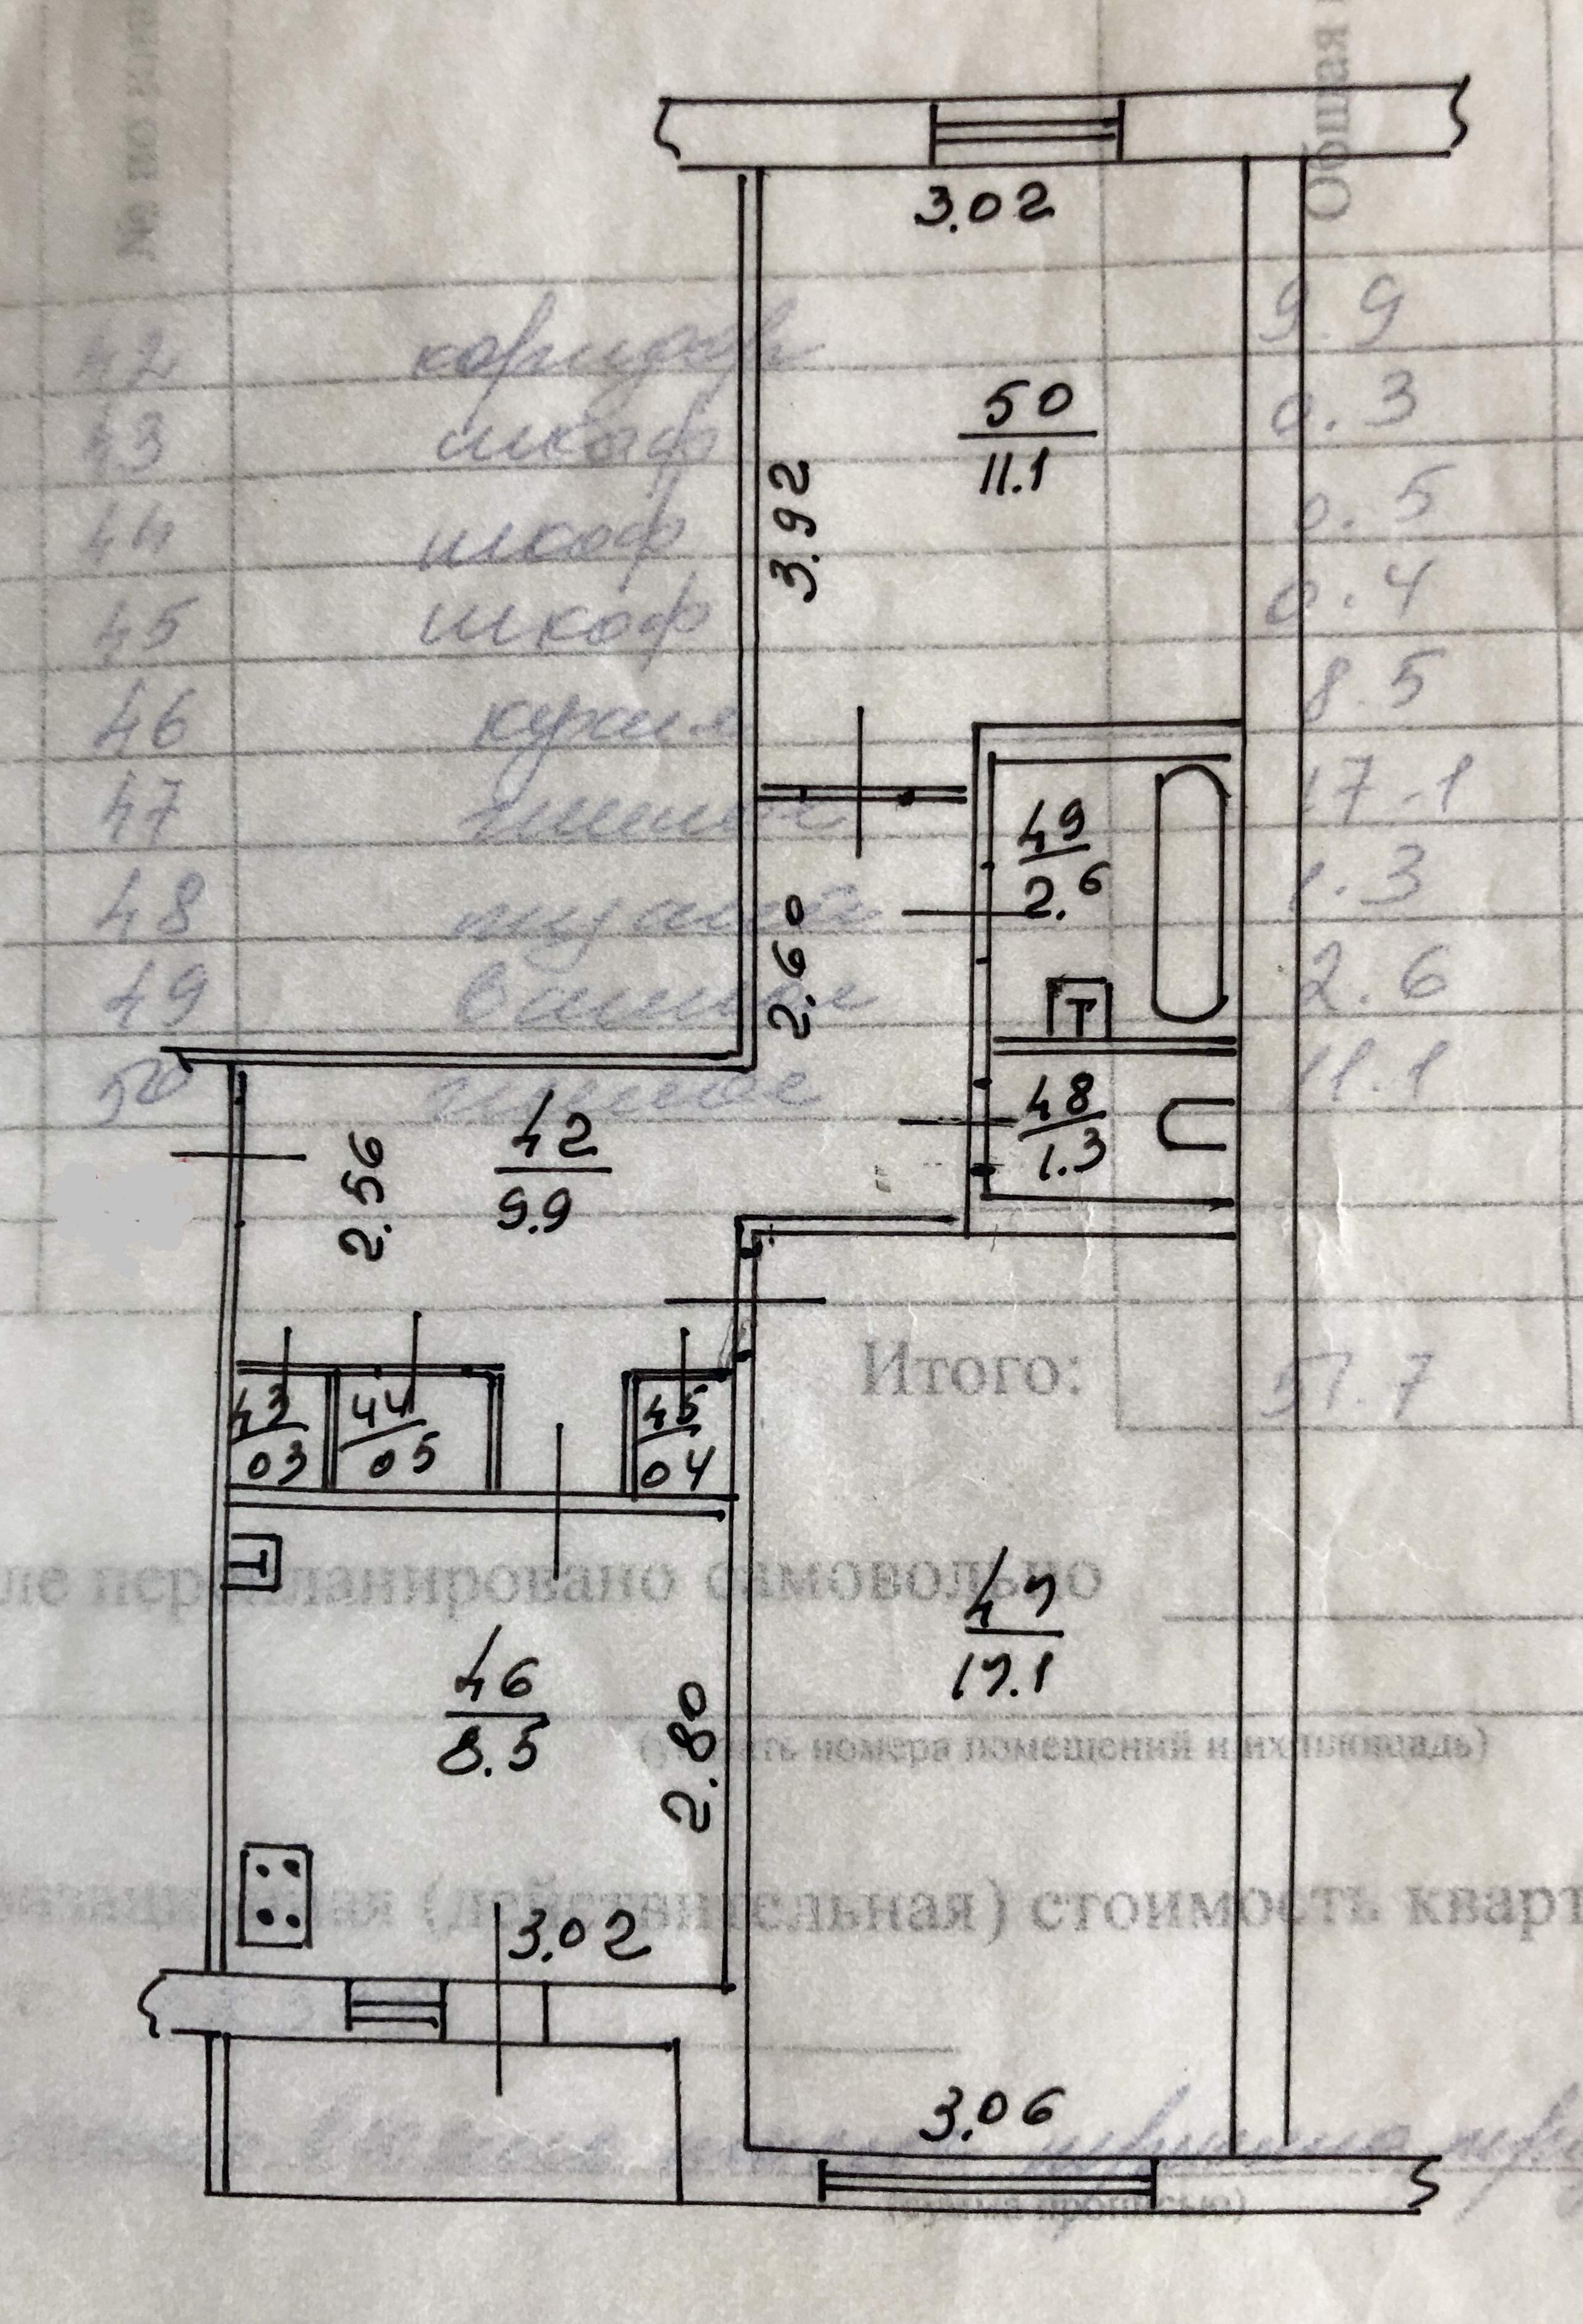 Общая
№ по
3.02
42 коридор 9.9
50
43 шкаф 0.3
11.1
3.92
44 шкаф 0.5
45 шкаф 0.4
46 кухня 8.5
47 жилое 17.1
49
2.6
48 туалет 1.3
2.60
49 ванная 2.6
Т
50 жилое 11.1
42
9.9
2.56
48
1.3
Итого: 51.7
43
03
44
05
45
04
Т
перепланировано самовольно
47
17.1
46
8.5
2.80
номера помещений и их площадь)
(действительная) стоимость кварт
3.02
3.06
(сумма прописью)